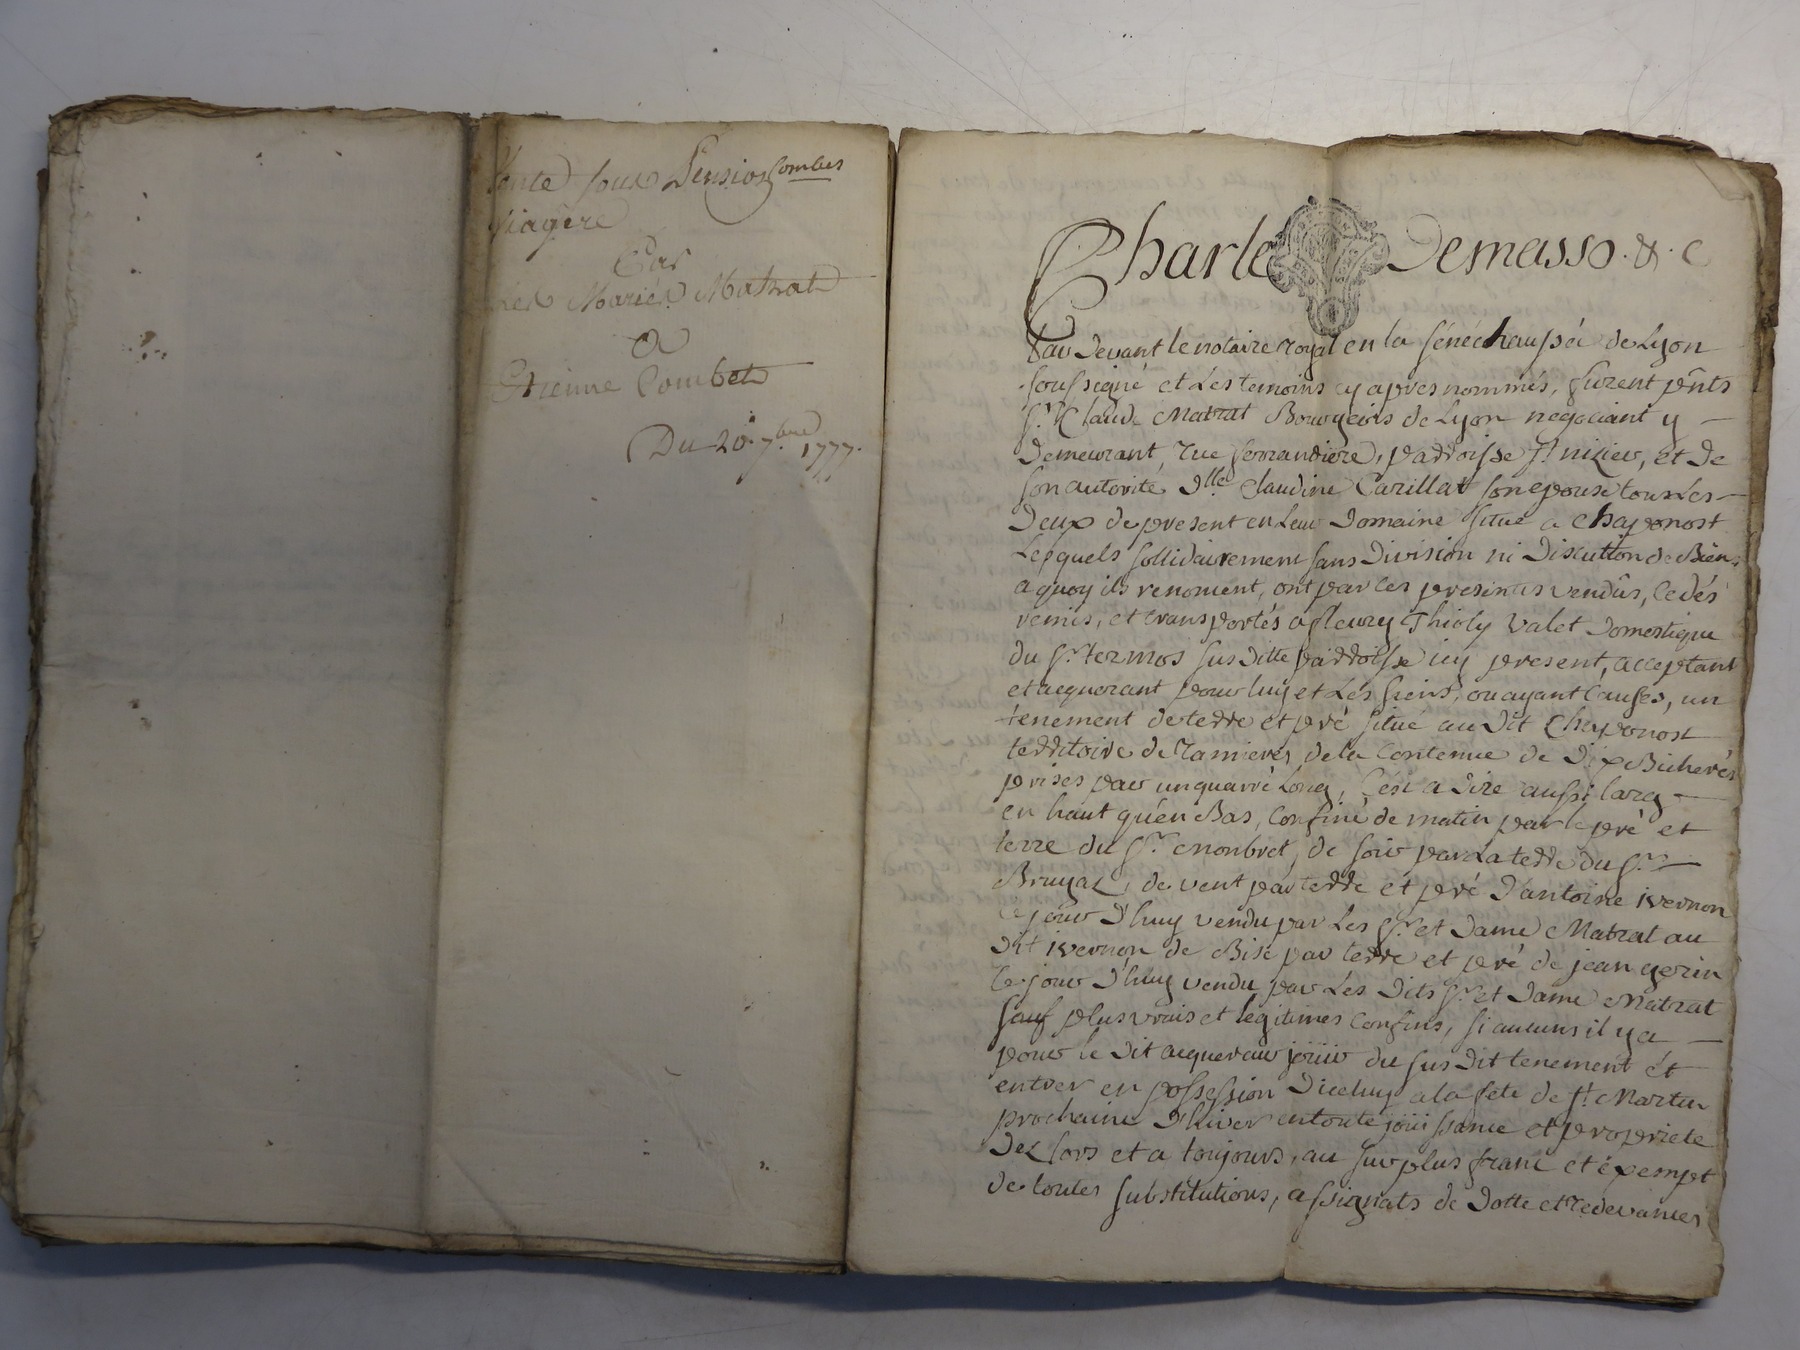 Vente sous Pension Combes
viagère
Par
Les Mariés Matrat
a
Etienne Combet
Du 20. 7bre 1777.
Charle Demasso. & c
Par Devant le notaire royal en la sénéchaussée de Lyon
soussigné et Les temoins cy apres nommés, furent pnts
Sr. Claude Matrat Bourgeois de Lyon negociant y
Demeurant, rue ferrandiere, parroisse St. nizier, et De
son autorité Dlle. Claudine Carillat son epouse tous Les
Deux de present en Leur Domaine situé a chaponost
Lesquels sollidairement sans Division ni Discution de Biens
a quoy ils renoncent, ont par ces presentes vendûs, cedés
remis, et transportés a fleury Thioly valet Domestique
du Sr. termos sus ditte parroisse icy present, acceptant
et acquerant pour luy et Les siens, ou ayant causes, un
tenement de terre et pré situé au Dit Chaponost
territoire de ramieres, de la contenue de Dix Bicherés
prises par un quarré Long, c'est a Dire aussi larg
en haut qu'en Bas, confiné de matin par le pré et
terre du Sr. monbret, de soir par La terre du Sr.
Bruyas, de vent par terre et pré D'antoine ivernon
ce jour D'huy vendu par Les Sr. et Dame Matrat au
Dit ivernon de Bise par terre et pré de jean gerin
ce jour D'huy vendu par Les Dits Sr. et Dame Matrat
sauf plus vrais et légitimes confins, si aucuns il y a
pour le Dit acquereur joüir du sus Dit tenement et
entrer en possession D'iceluy a la fete de St. Martin
prochaine D'hiver en toute joüissance et proprieté
Dez lors et a toujours, au surplus franc et éxempt
de toutes substitutions, assignats de Dotte et redevances